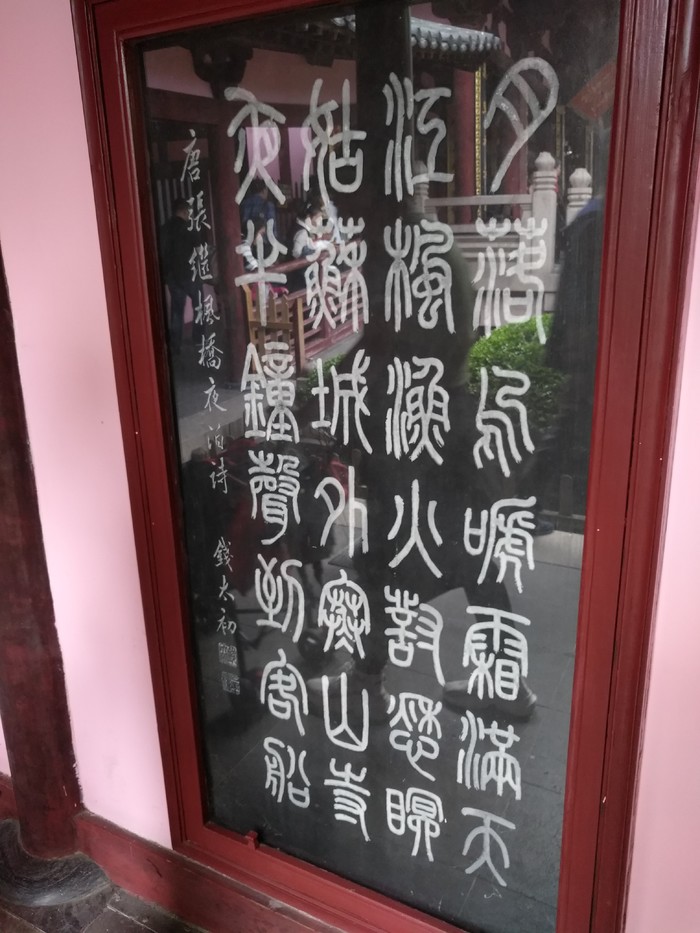 月落烏嗁霜滿天
江楓漁火對愁瞑
姑蘇城外寒山寺
夜半鐘聲到客船
唐張继楓橋夜泊诗 錢太初